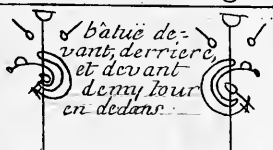 bâtuë de=
vant, derriere,
et devant
demy tour
en dedans